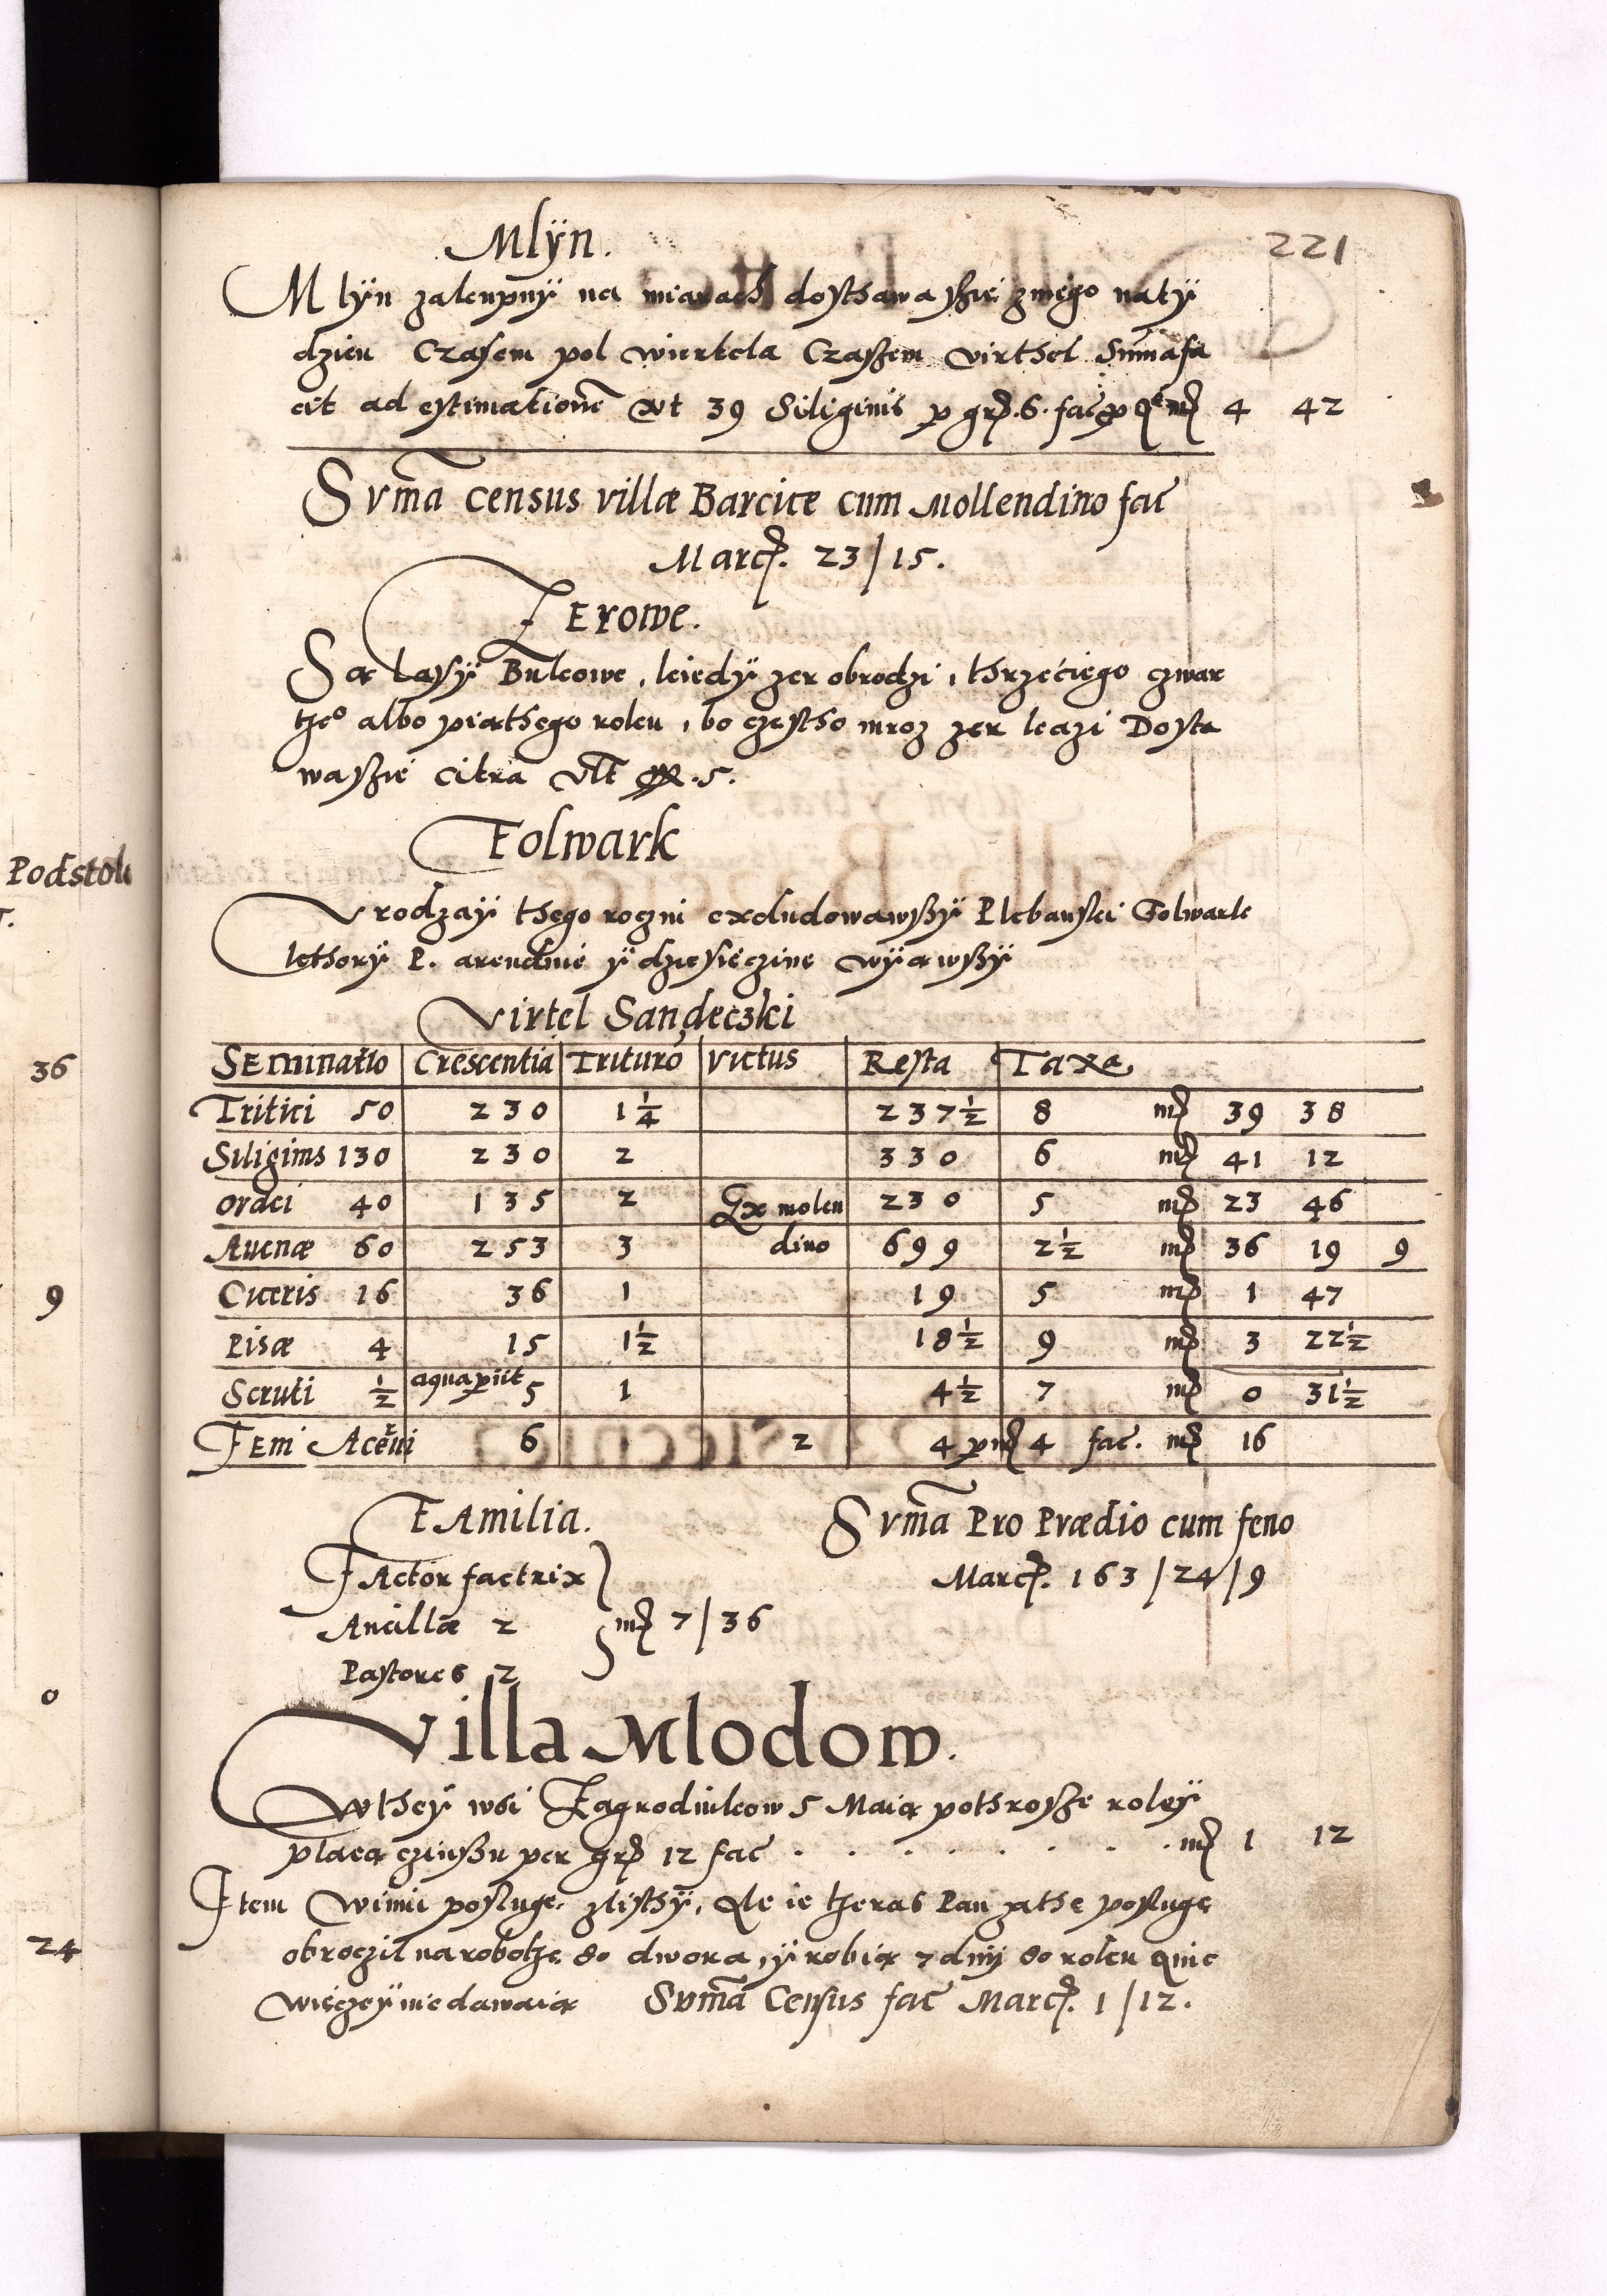 Podstoli
36
9
0
24
221
Mlÿn.
Mlÿn zakupnÿ na miarach dosthawa ssię zniego na tÿ
dzien Czasem pol wiertela Czassem virthel Summa fa
cit ad estimationē vt 39 Siliginis p gr. 6. fac mr 4 42
Svm̄a census villæ Barcice cum Mollendino fac
Marc. 23/15.
Zerowe.
Są lasÿ Bukowe, kiedÿ zer obrodzi, thrzeciego czwar
tego albo piąthego roku, bo częstho mroz zer kazi Dosta
wa ssię citra vlt 5.
Folwark
Vrodzaÿ thego roczni excludowawssÿ Plebanski Folwark
kthorÿ P. arenduie ÿ dziesięczinę wÿąwssÿ
Virtel Sandeczki
Seminatio Crescentia Trituro Victus Resta Taxa
Tritici 50 230 1¼ 237½ 8 mr 39 38
Siliginis 130 230 2 330 6 mr 41 12
Ordei 40 135 2 Ex molen 230 5 mr 23 46
Auenæ 60 253 3 dino 699 2½ mr 36 19 9
Ciceris 16 36 1 19 5 mr 1 47
Pisæ 4 15 1½ 18½ 9 mr 3 22½
Scruti ½ aqua piit 5 1 4½ 7 mr 0 31½
Feni Acerui 6 2 4 p mr 4 fac. mr 16
Familia.
Factor factrix
Ancillæ 2 mr 7/36
Pastores 2
Svm̄a Pro Prædio cum feno
Marc. 163/24/9
Villa Mlodow.
W theÿ wsi Zagrodnikow 5 Maią po throsze roleÿ
płacą czinssu per gr 12 fac . . . . . . . . mr 1 12
Item Winni posługę zlisthÿ, Ale ie theras Pan za thę posługę
obrocził na robothę do dwora, ÿ robią 7 dnÿ do roku A nic
więczeÿ nie dawaią Svm̄a Census fac Marc. 1/12.